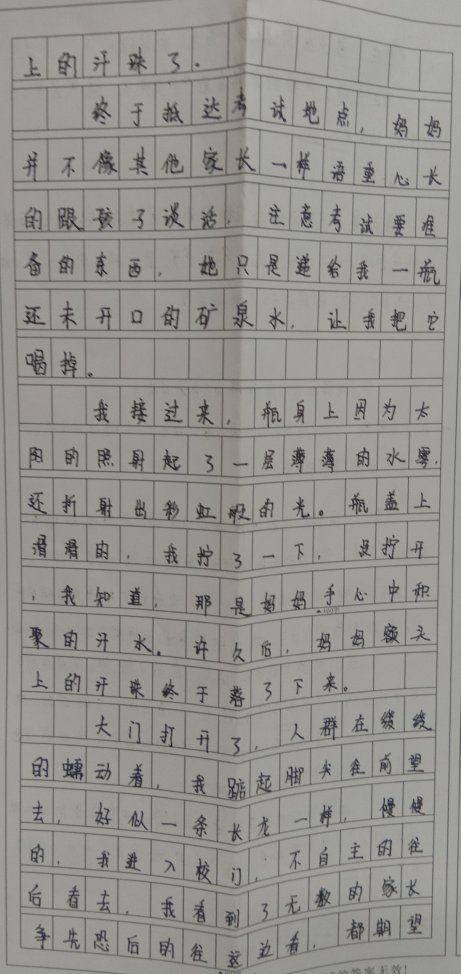 上的汗珠了。
终于抵达考试地点，妈妈
并不像其他家长一样语重心长
的跟孩子谈话，注意考试要准
备的东西，她只是递给我一瓶
还未开口的矿泉水，让我把它
喝掉。
我接过来，瓶身上因为太
阳的照射起了一层薄薄的水雾，
还折射出彩虹般的光。瓶盖上
滑滑的，我拧了一下，没拧开
，我知道，那是妈妈手心中积
聚的汗水。许久后，妈妈额头
上的汗珠终于落了下来。
大门打开了，人群在缓缓
的蠕动着，我踮起脚尖往前望
去，好似一条长龙一样，慢慢
的，我进入校门，不自主的往
后看去，我看到了无数的家长
争先恐后的往这边看，都期望
答案无效！